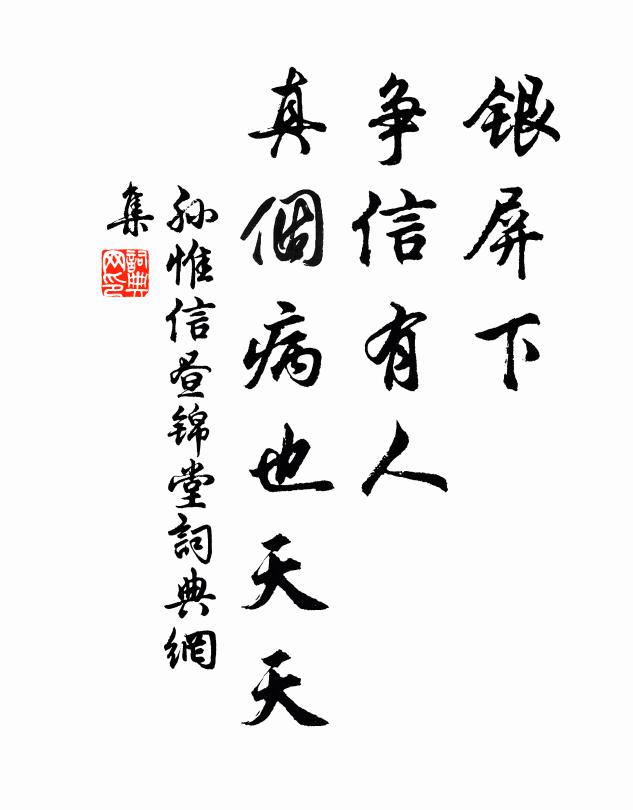 銀屏下
爭信有人
真個病也天天
孙惟信昼锦堂詞典網
集
詞典网印